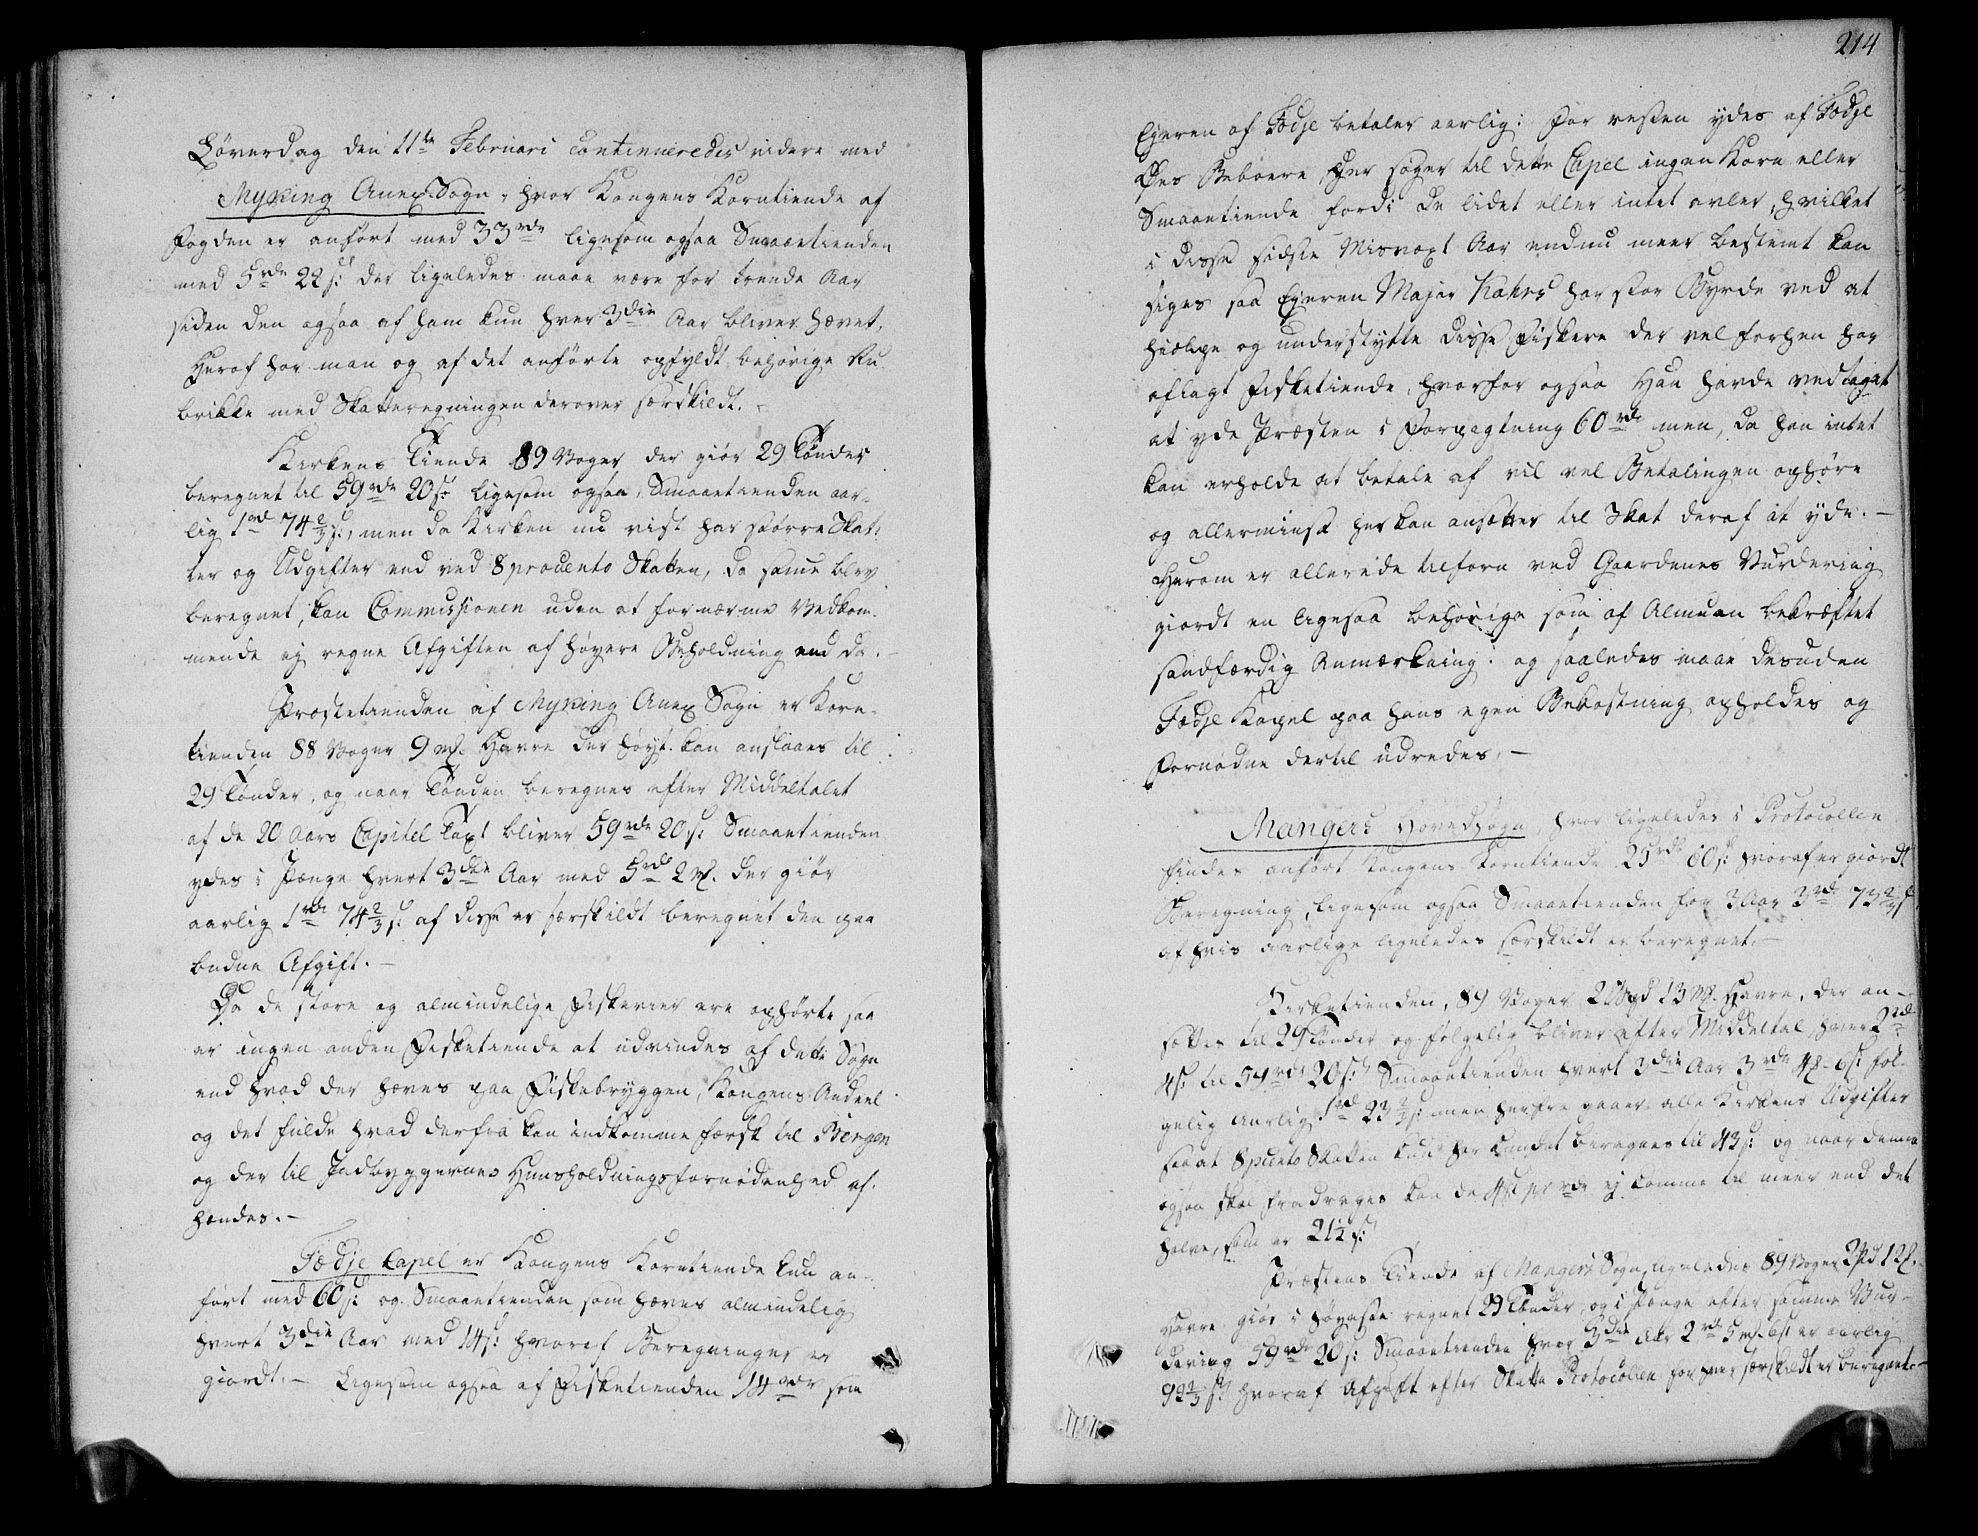 Løverdag den 11te Februari continueredes videre med
Myking Anex Sogn, hvor Kongens Korntiende af
Fogden er anført med 33 rdr ligesom ogsaa Smaaetienden
med 5 rdr 22 s: der ligeledes maae være for trende Aar
siden den ogsaa af ham kun hver 3die Aar bliver hævet,
Heraf har man og af det anførte opfyldt behørige Ru
brikke med Skatteregningen derover særskildt. -
Kirkens Tiende 89 Voger der giør 29 Tønder
beregnet til 59 rdr 20 s: ligesom ogsaa Smaaetienden aar-
lig 1 rd 74 2/3 s:, men da Kirken nu vist har større Skat-
ter og Udgifter end ved 8 procento Skatten, da samme blev
beregnet, kan Commissionen uden at fornærme Vedkom-
mende ej regne Afgiften af høyere Beholdning end da. -
Præstetienden af Myking Anex Sogn er Korn-
tienden 88 Voger 9 mk. Havre der høyt kan anslaaes til
29 Tønder, og naar Tønden beregnes efter Middeltalet
af de 20 Aars Capitel Taxt bliver 59 rdr 20 s: Smaaetienden
ydes i Penge hvert 3die Aar med 5 rdr 2 mk. der giør
aarlig 1 rdr 74 2/3 s: af disse er særskildt beregnet den paa
budne Afgift. -
Da de store og almindelige Fiskerier ere ophørte saa
er ingen anden Fisketiende at udvindes af dette Sogn
end hvad der hæves paa Fiskebryggen, Kongens Andeel
og det fulde hvad derfra kan indkomme færsk til Bergen
og der til Indbyggernes Huusholdnings fornødenhed af-
hændes. -
Fædje Capel er Kongens Korntiende kun an-
ført med 60 s: og Smaaetienden som hæves almindelig
hvert 3die Aar med 14 s: hvoraf Beregninger er
giordt. - Ligesom ogsaa af Fisketienden 14 rdr som
214
Ejeren af Fædje betaler aarlig: For resten ydes af Fædje
Øes Beboere Her søger til dette Capel ingen Korn eller
Smaaetiende fordi de lidet eller intet avler, hvilket
i disse sidste Misvæxt Aar endnu meer bestemt kan
siges saa Ejeren Major Kahrs har stor Byrde ved at
hielpe og understytte disse Fiskere der vel forhen har
aflagt Fisketiende, hvorfor ogsaa Han havde vedtaget
at yde Præsten i Forpagtning 60 rdr men, da han intet
kan erholde at betale af vil vel Betalingen ophøre
og allermindst her kan ansættes til Skat deraf at yde. -
Herom er allerede tilforn ved Gaardenes Vurdering
giordt en ligesaa behørige som af Almuen bekræftet
sandfærdig Anmærkning: og saaledes maae desuden
Fædje Kapel paa hans egen Bekostning opholdes og
Fornødne dertil udredes. -
Mangers Hovedsogn, hvor ligeledes i Protocollen
findes anført Kongens Korntiende 25 rdr 60 s: hvoraf er giordt
Beregning, ligesom ogsaa Smaaetienden for 3 Aar 3 rd 73 2/3 s
af hvis aarlige ligeledes særskildt er beregnet. -
Kirketienden, 89 Voger 2 13 mk. Havre, der an-
sættes til 29 Tønder og følgelig bliver efter Middeltal hver 2 rd
4 s: til 59 rdr 20 s: Smaaetienden hvert 3die Aar 3 rdr 4 mk - 6 s: føl-
gelig aarlig 1 rd 23 s: men herfra gaaer alle Kirkens Udgifter
saa at 8 pCento Skatten kun har kundet beregnes til 43 s: og naar denne
ogsaa skal fradrages kan de 4 s: pr rdr ej komme til meer end det
halve, som er 21 1/2 s:
Præstens Tiende af Mangers Sogn, ligeledes 89 Voger 2 Pd 12 mk.
Havre giør i høyeste regnet 29 Tønder, og i Penge efter samme Vur-
dering 59 rdr 20 s: Smaaetienden hver 3die Aar 2 rd 5 mk. 6 s: er aarlig
92 2/3 s: hvoraf Afgift efter Skatte Protocollen for hver særskildt er beregnet. -